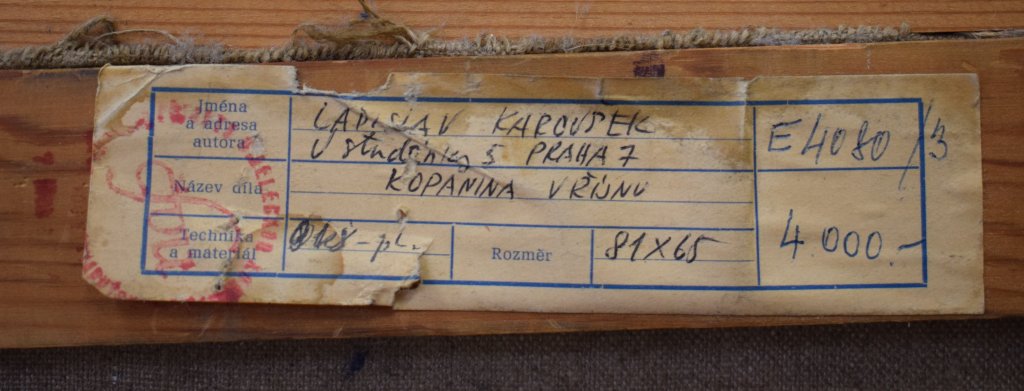 Jména
a adresa
autora
LADISLAV KAROUŠEK
U studánky 5 PRAHA 7
Název díla
KOPANINA V ŘÍJNU
Technika
a materiál
Olej - pl.
Rozměr
81X65
E 4080/3
4.000.-